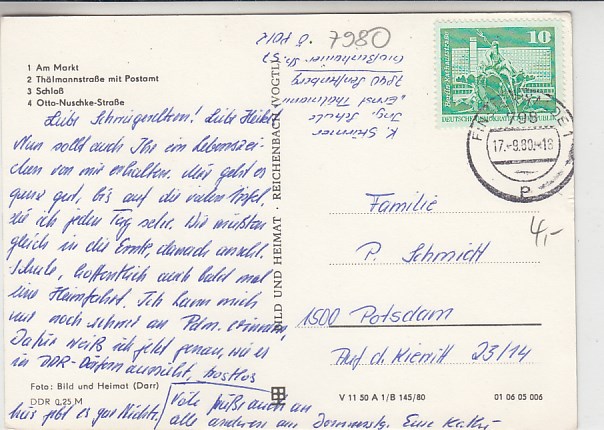 1 Am Markt
2 Thälmannstraße mit Postamt
3 Schloß
4 Otto-Nuschke-Straße
Liebe Schwiegereltern! Liebe Heike!
Nun sollt auch Ihr ein Lebenszei-
chen von mir erhalten. Mir geht es
ganz gut, bis auf die vielen Äpfel,
die ich jeden Tag sehe. Wir mußten
gleich in die Ernte, danach anschl.
Schule, hoffentlich auch bald mal
eine Heimfahrt. Ich kann mich
nur noch schwer an Pdm. erinnern,
Dafür weiß ich jetzt genau, wie es
in DDR-Dörfern aussieht, trostlos
hier gibt es gar nichts,
Viele Grüße auch an
alle anderen am
Foto: Bild und Heimat (Darr)
DDR 0,25 M
BILD UND HEIMAT · REICHENBACH (VOGTL)
K. Stürmer
Ing. Schule
"Ernst Thälmann"
7840 Senftenberg
7980
10
DEUTSCHE DEMOKRATISCHE REPUBLIK
798
17.-9.80.-18
P
4,-
Familie
P. Schmidt
1500 Potsdam
23/14
V 11 50 A 1/B 145/80
01 06 05 006